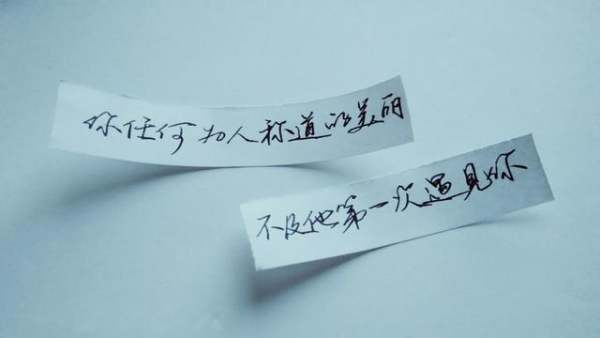 你任何为人称道的美丽
不及他第一次遇见你